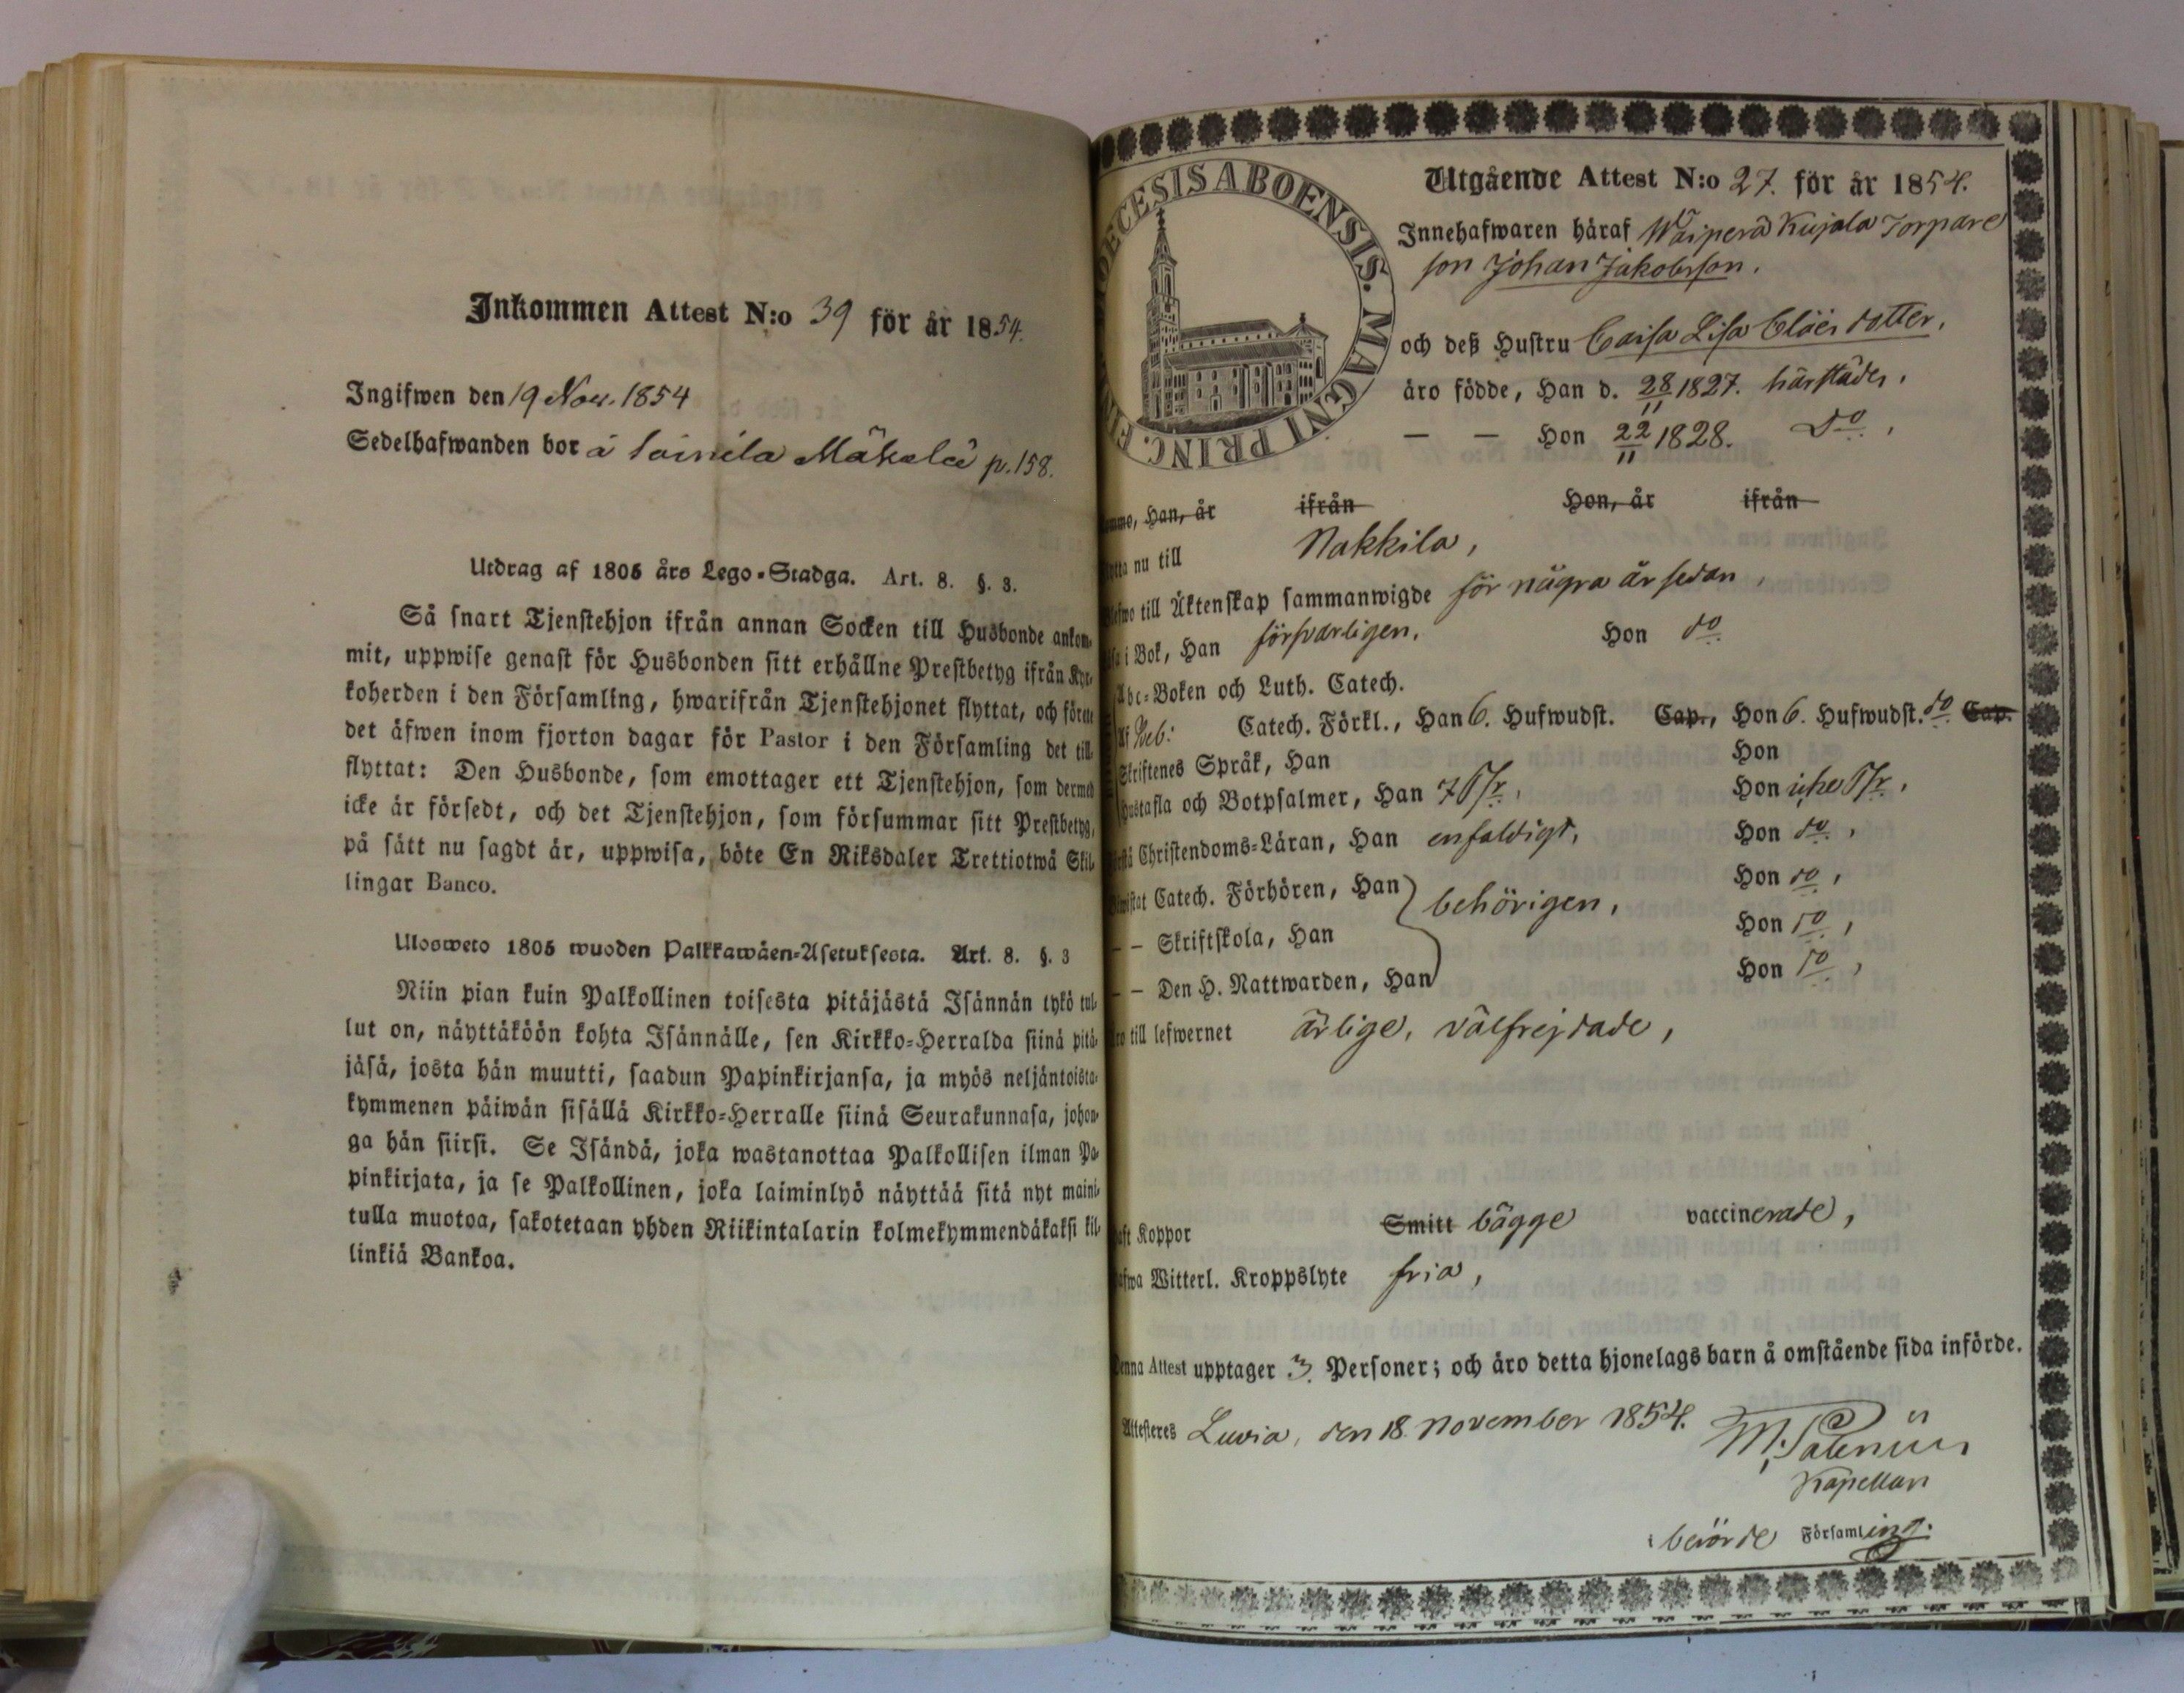 Inkommen Attest N:o 39 för år 1854.
Ingifwen den 19 Nov. 1854
Sedelhafwanden bor å Soinila Mäkelä p. 158.
Utdrag af 1805 års Lego-Stadga. Art. 8. §. 3.
Så snart Tjenstehjon ifrån annan Socken till Husbonde ankom-
mit, uppwise genast för Husbonden sitt erhållne Prestbetyg ifrån Kyr-
koherden i den Församling, hwarifrån Tjenstehjonet flyttat, och förete
det äfwen inom fjorton dagar för Pastor i den Församling det till-
flyttat: Den Husbonde, som emottager ett Tjenstehjon, som dermed
icke är försedt, och det Tjenstehjon, som försummar sitt Prestbetyg,
på sätt nu sagdt är, uppwisa, böte En Riksdaler Trettiotwå Skil-
lingar Banco.
Ulosweto 1805 wuoden Palkkawäen-Asetuksesta. Art. 8. §. 3
Niin pian kuin Palkollinen toisesta pitäjästä Isännän tykö tul-
lut on, näyttäköön kohta Isännälle, sen Kirkko-Herralda siinä pitä-
jäsä, josta hän muutti, saadun Papinkirjansa, ja myös neljäntoista-
kymmenen päiwän sisällä Kirkko-Herralle siinä Seurakunnasa, johon-
ga hän siirsi. Se Isändä, joka wastanottaa Palkollisen ilman Pa-
pinkirjata, ja se Palkollinen, joka laiminlyö näyttää sitä nyt maini-
tulla muotoa, sakotetaan yhden Riikintalarin kolmekymmendäkaksi kil-
linkiä Bankoa.
DIOECESIS ABOENSIS. MAGNI PRINC. FIN
Utgående Attest N:o 27. för år 1854.
Innehafwaren häraf Waiperä Kujala Torpare
son Johan Jakobsson.
och deß Hustru Caisa Lisa Claës dotter,
äro födde, Han d. 28/11 1827. härstädes,
— — Hon 22/11 1828. do,
Han, år ifrån Hon, år ifrån
nu till Nakkila,
till Äktenskap sammanwigde för några år sedan,
i Bok, Han försvarligen, Hon do
Abc-Boken och Luth. Catech.
Af Neb: Catech. Förkl., Han 6. Hufwudst. Cap., Hon 6. Hufwudst. do Cap.
Skriftenes Språk, Han Hon
Hustafla och Botpsalmer, Han 7 Psr, Hon icke Psr,
Christendoms-Läran, Han enfaldigt, Hon do,
Catech. Förhören, Han behörigen, Hon do,
— — Skriftskola, Han Hon do,
— — Den H. Nattwarden, Han Hon do,
till lefwernet ärlige, välfrejdade,
Koppor Smitt bägge vaccinerade,
Witterl. Kroppslyte fria,
Denna Attest upptager 3. Personer; och äro detta hjonelags barn å omstående sida införde.
Attesteres Luvia, den 18 November 1854. M. Salenius
Kapellan
i berörde Församling.